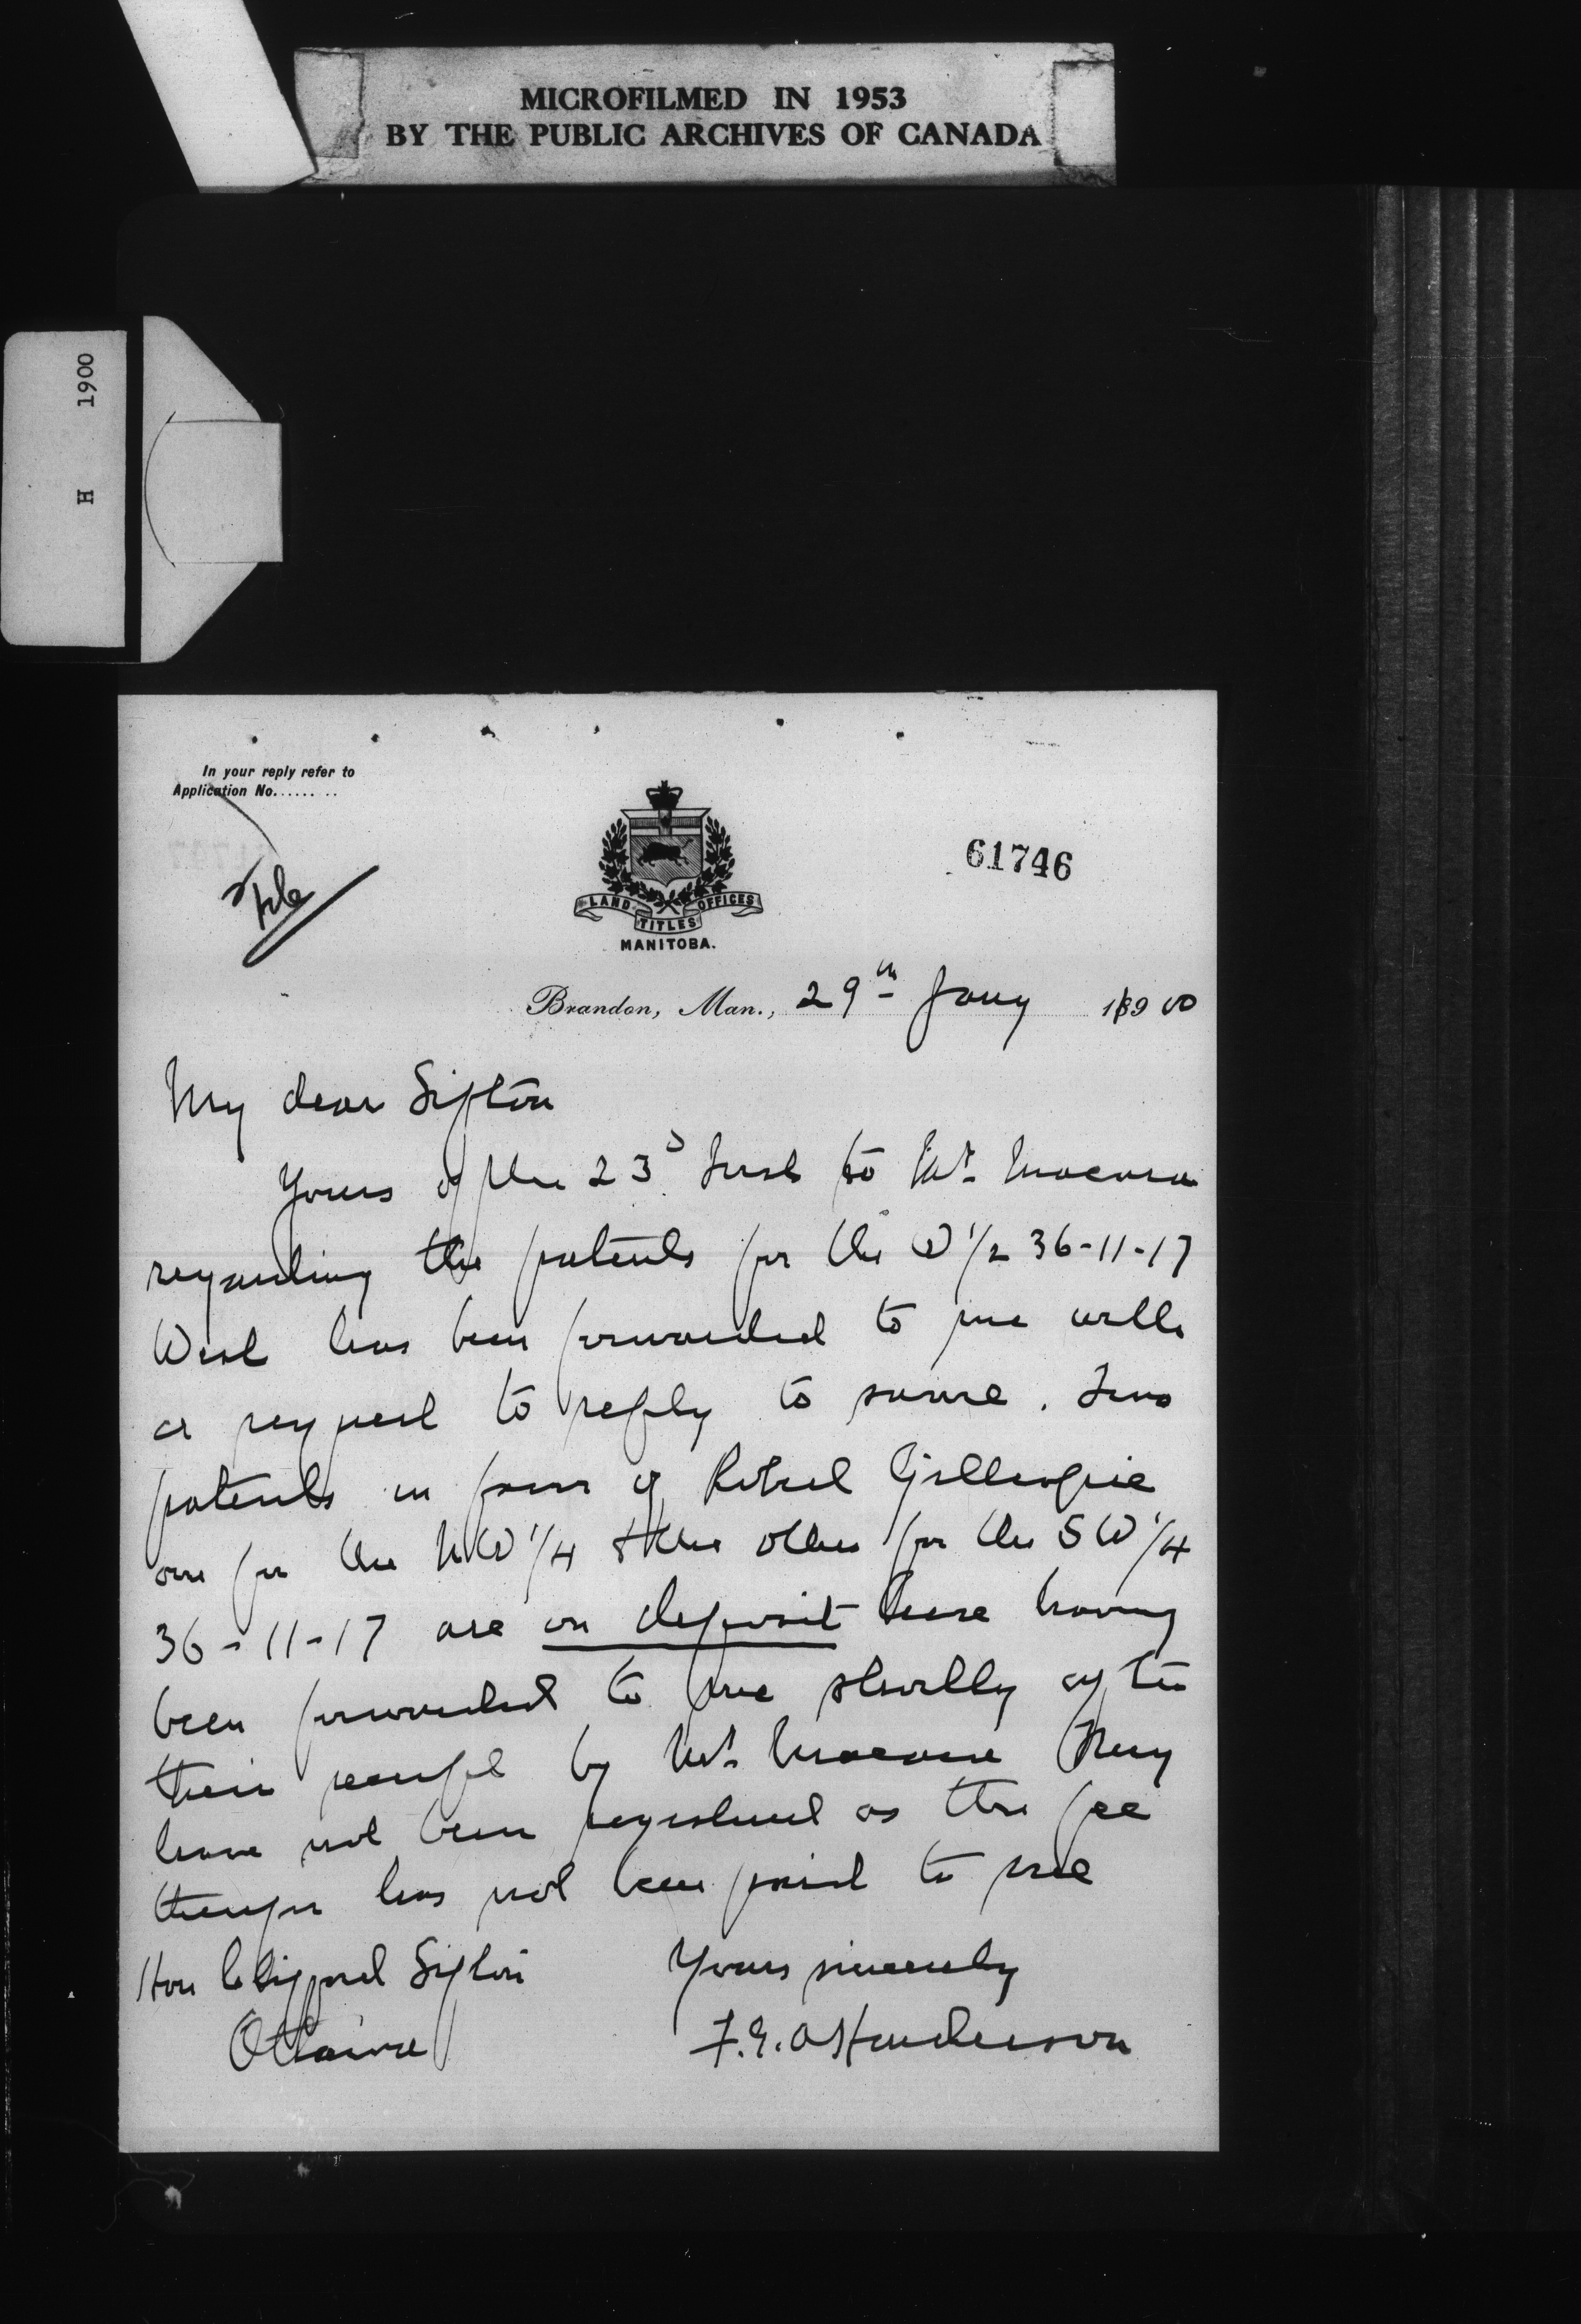 MICROFILMED IN 1953
BY THE PUBLIC ARCHIVES OF CANADA
H 1900
In your reply refer to
Application No.
61746
File
LAND TITLES OFFICES
MANITOBA.
Brandon, Man., 29th Jany 1900
My dear Sifton
Yours of the 23d Inst to Mr. Macara
regarding the patents for the W 1/2 36-11-17
West has been forwarded to me with
a request to reply to same. Two
patents in favor of Robert Gillespie
one for the NW 1/4 & the other for the SW 1/4
36-11-17 are on deposit here having
been forwarded to me shortly after
their receipt by Mr. Macara They
have not been registered as the fee
therefor has not been paid to me
Yours sincerely
F.G.A Henderson
Hon Clifford Sifton
Ottawa